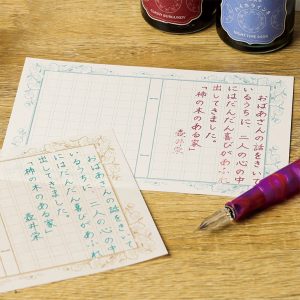 おばあさんの話をきいて
いるうちに、二人の心の中
にはだんだん喜びがあふれ
出してきました。
「柿の木のある家」
壺井栄
おばあさんの話をきいて
いるうちに、二人の心の中
にはだんだん喜びがあふれ
出してきました。
「柿の木のある家」
壺井栄